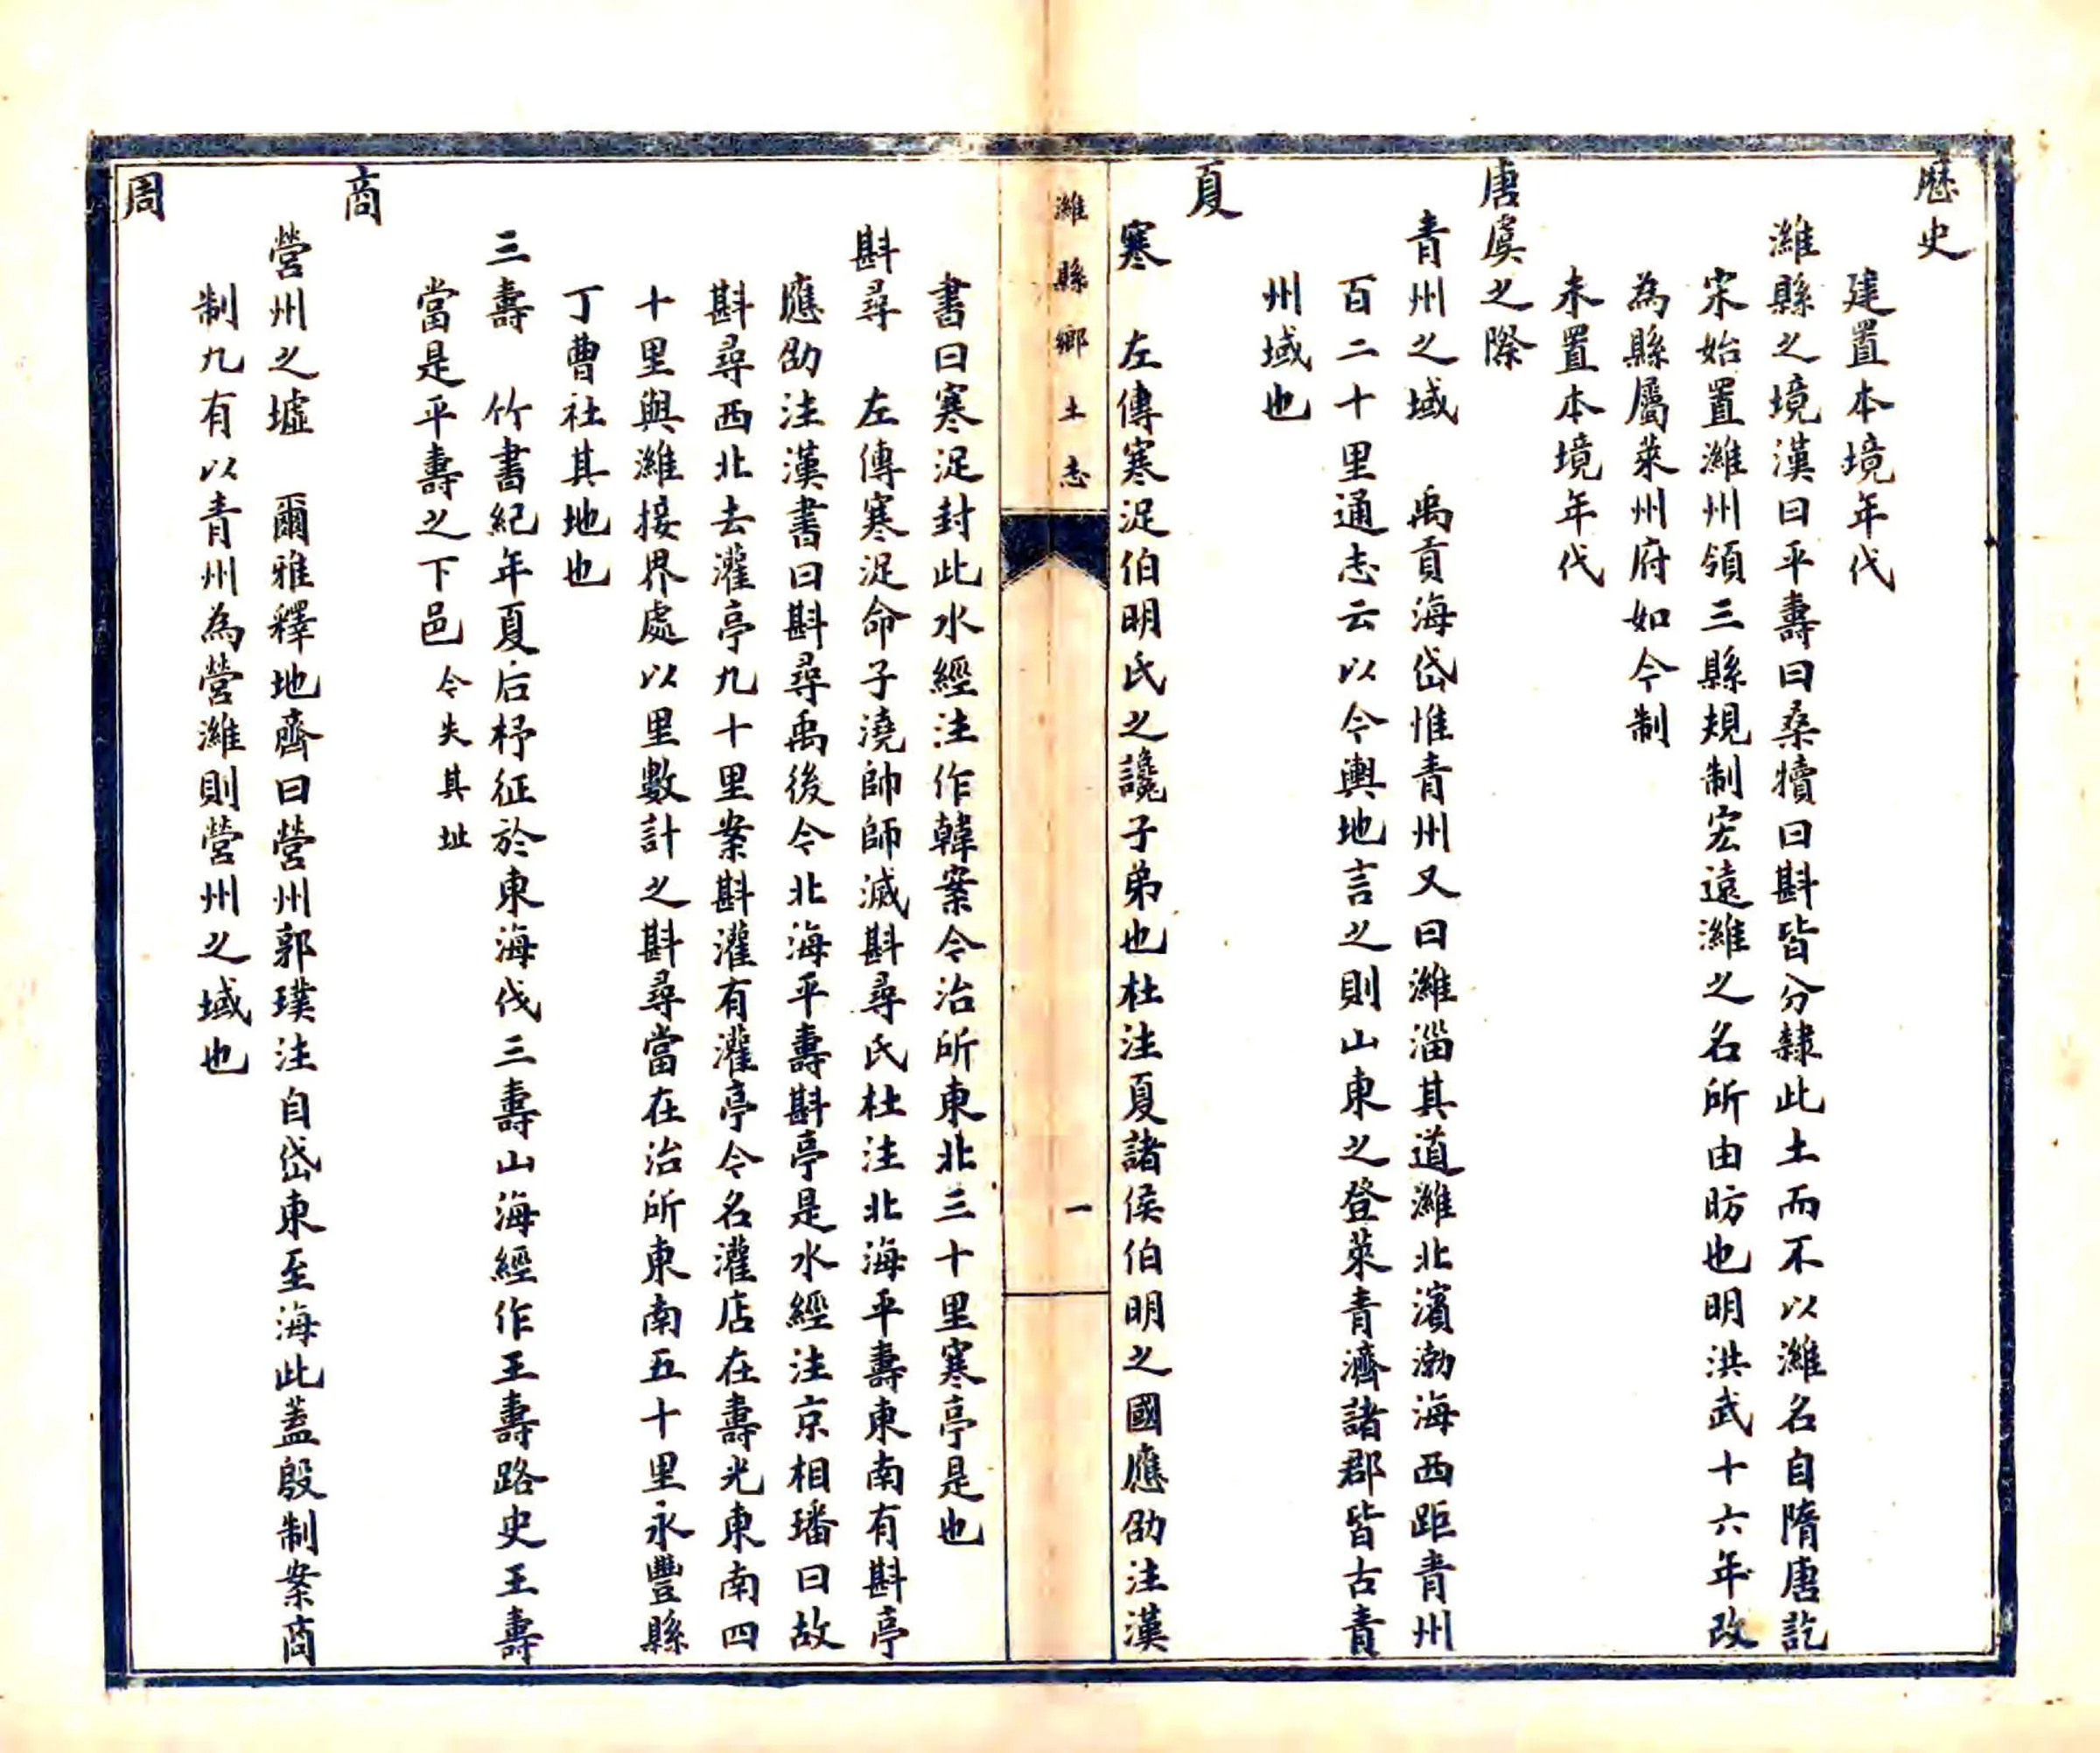 歷史
建置本境年代
濰縣之境漢曰平壽曰桑犢曰斟皆分隸此土而不以濰名自隋唐訖
宋始置濰州領三縣規制宏遠濰之名所由昉也明洪武十六年改
為縣屬萊州府如今制
未置本境年代
唐虞之際
青州之域　禹貢海岱惟青州又曰濰淄其道濰北濱渤海西距青州
百二十里通志云以今輿地言之則山東之登萊青濟諸郡皆古青
州域也
夏
寒　左傳寒浞伯明氏之讒子弟也杜注夏諸侯伯明之國應劭注漢
濰縣鄉土志
一
書曰寒浞封此水經注作韓案今治所東北三十里寒亭是也
斟尋　左傳寒浞命子澆帥師滅斟尋氏杜注北海平壽東南有斟亭
應劭注漢書曰斟尋禹後今北海平壽斟亭是水經注京相璠曰故
斟尋西北去灌亭九十里案斟灌有灌亭今名灌店在壽光東南四
十里與濰接界處以里數計之斟尋當在治所東南五十里永豐縣
丁曹社其地也
三壽　竹書紀年夏后杼征於東海伐三壽山海經作王壽路史王壽
當是平壽之下邑今失其址
商
營州之墟　爾雅釋地齊曰營州郭璞注自岱東至海此蓋殷制案商
制九有以青州為營濰則營州之域也
周